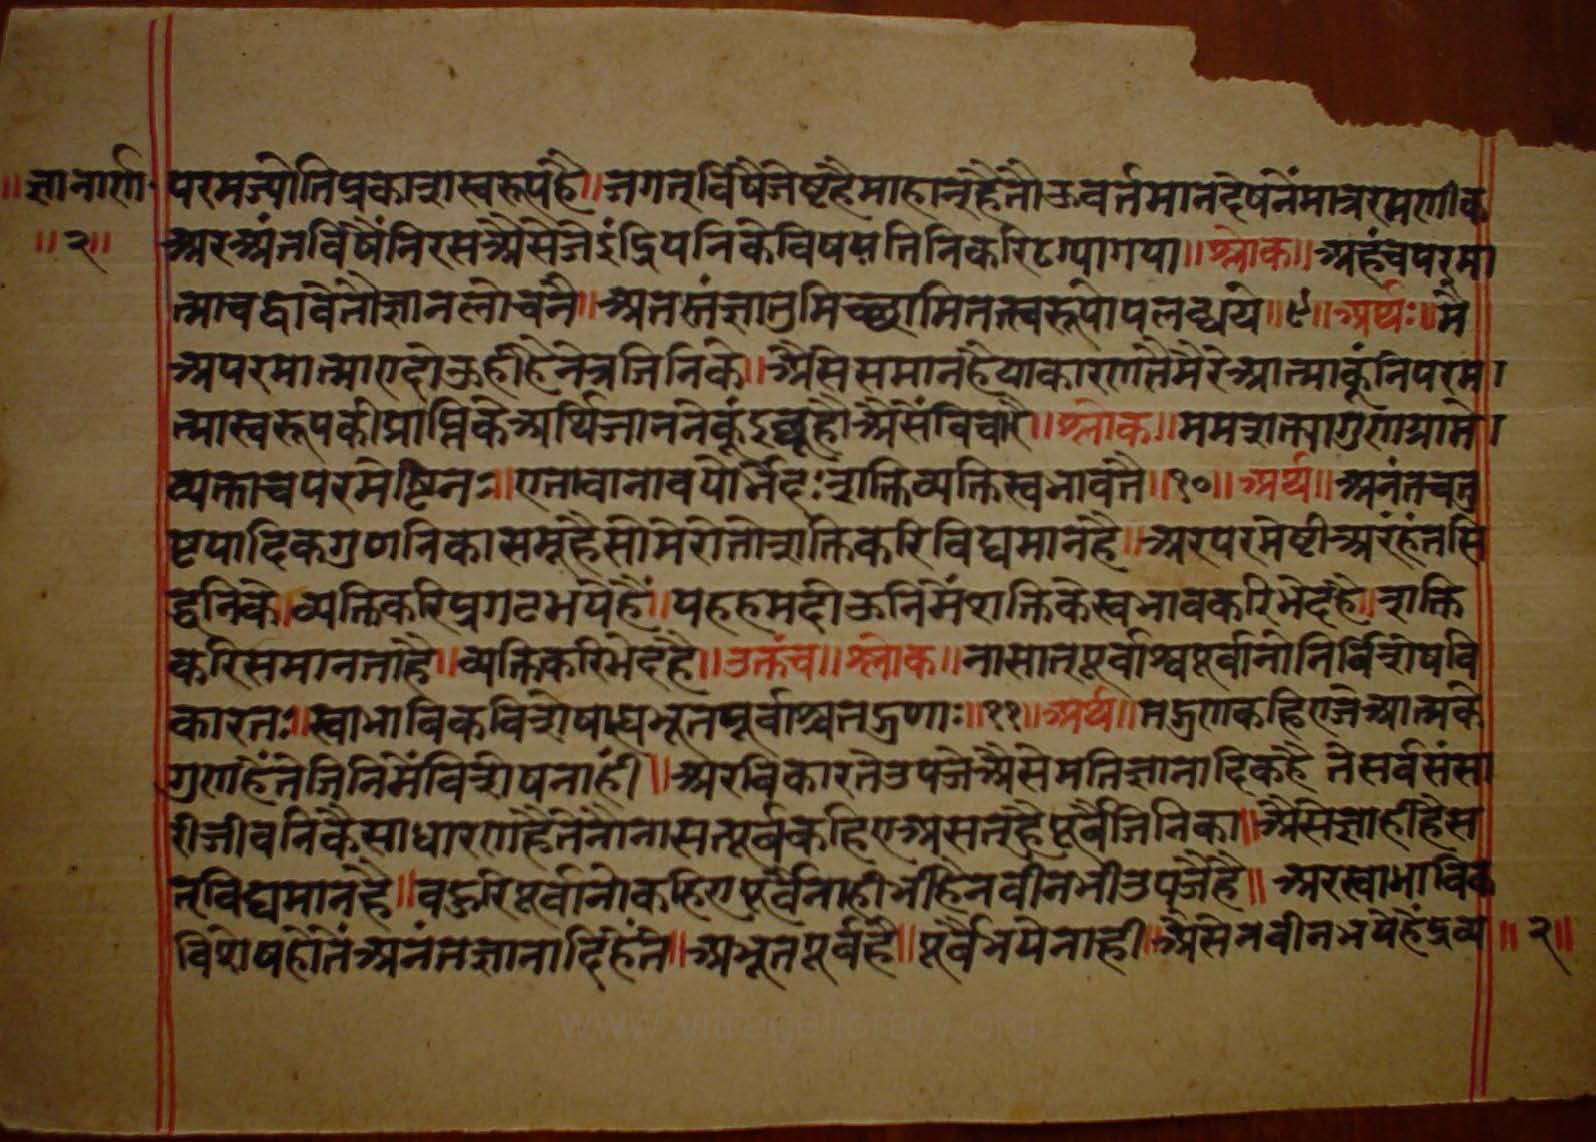 ॥ज्ञानार्ण॰ परमज्योतिप्रकाशस्वरूपहै॥जगतविषैजेष्टहैमाहानहैतौऊवर्तमानदेषनैंमात्ररमणीक
॥२॥ अरअंतविषैंनिरसअैसेजेइंद्रियनिकेविषयतिनिकरिठग्यागया॥श्लोक॥अहंचपरमा
त्माचद्वावेतौज्ञानलोचनै॥अतस्तंज्ञातुमिच्छामितत्स्वरूपोपलब्धये॥९॥अर्थः॥मै
अपरमात्माएदोऊहीहैनेत्रजिनिके॥अैसेसमानहैयाकारणतैमैरेआत्माकूंनिपरमा
त्मास्वरूपकीप्राप्तिकेअर्थिजाननेकूंइच्छूहौअैसेंविचारै॥श्लोक॥ममशक्त्यागुणग्रामो
व्यक्ताचपरमेष्टिनः॥एतावानावयोर्भेदःशक्तिव्यक्तिस्वभावतै॥१०॥अर्थ॥अनंतचतु
ष्टयादिकगुणनिकासमूहहैसोमेरोतोशक्तिकरिविद्यमानहै॥अरपरमेष्टीअरहंतसि
द्धनिके।व्यक्तिकरिप्रगटभयेहैं॥यहहमदोऊनिमेंशक्तिकेस्वभावकरिभेदहै॥शक्ति
करिसमानताहै॥व्यक्तिकरिभेदहै॥उक्तंच॥श्लोक॥नासात्पूर्वाश्चपूर्वानोनिर्विशेषवि
कारतः॥स्वाभाविकविशेषाह्यभूतपूर्वाश्चतद्गुणाः॥११॥अर्थ॥तद्गुणकहिएजेआत्मके
गुणहैंतेजिनिमेंविशेषनाही॥अरविकारतेउपजेअैसेमतिज्ञानादिकहै तेसर्वसंसा
रीजीवनिकैसाधारणहैतेंतौनासत्पूर्वकहिएअसत्हैपूर्वैजिनिका॥अैसेज्ञाहीहैस
तविद्यमानहै॥वहुरिपूर्वानोकहिएपूर्वैनाहीभीहैनवीनभीउपजैहै॥ अरस्वाभाविक
विशेषहोतेंअनंतज्ञानादिहैंते॥अभूतपूर्वहै॥पूर्वैभयेनाही॥अैसेनवीनभयेहैंद्रव्य ॥२॥
www.vitragelibrary.org